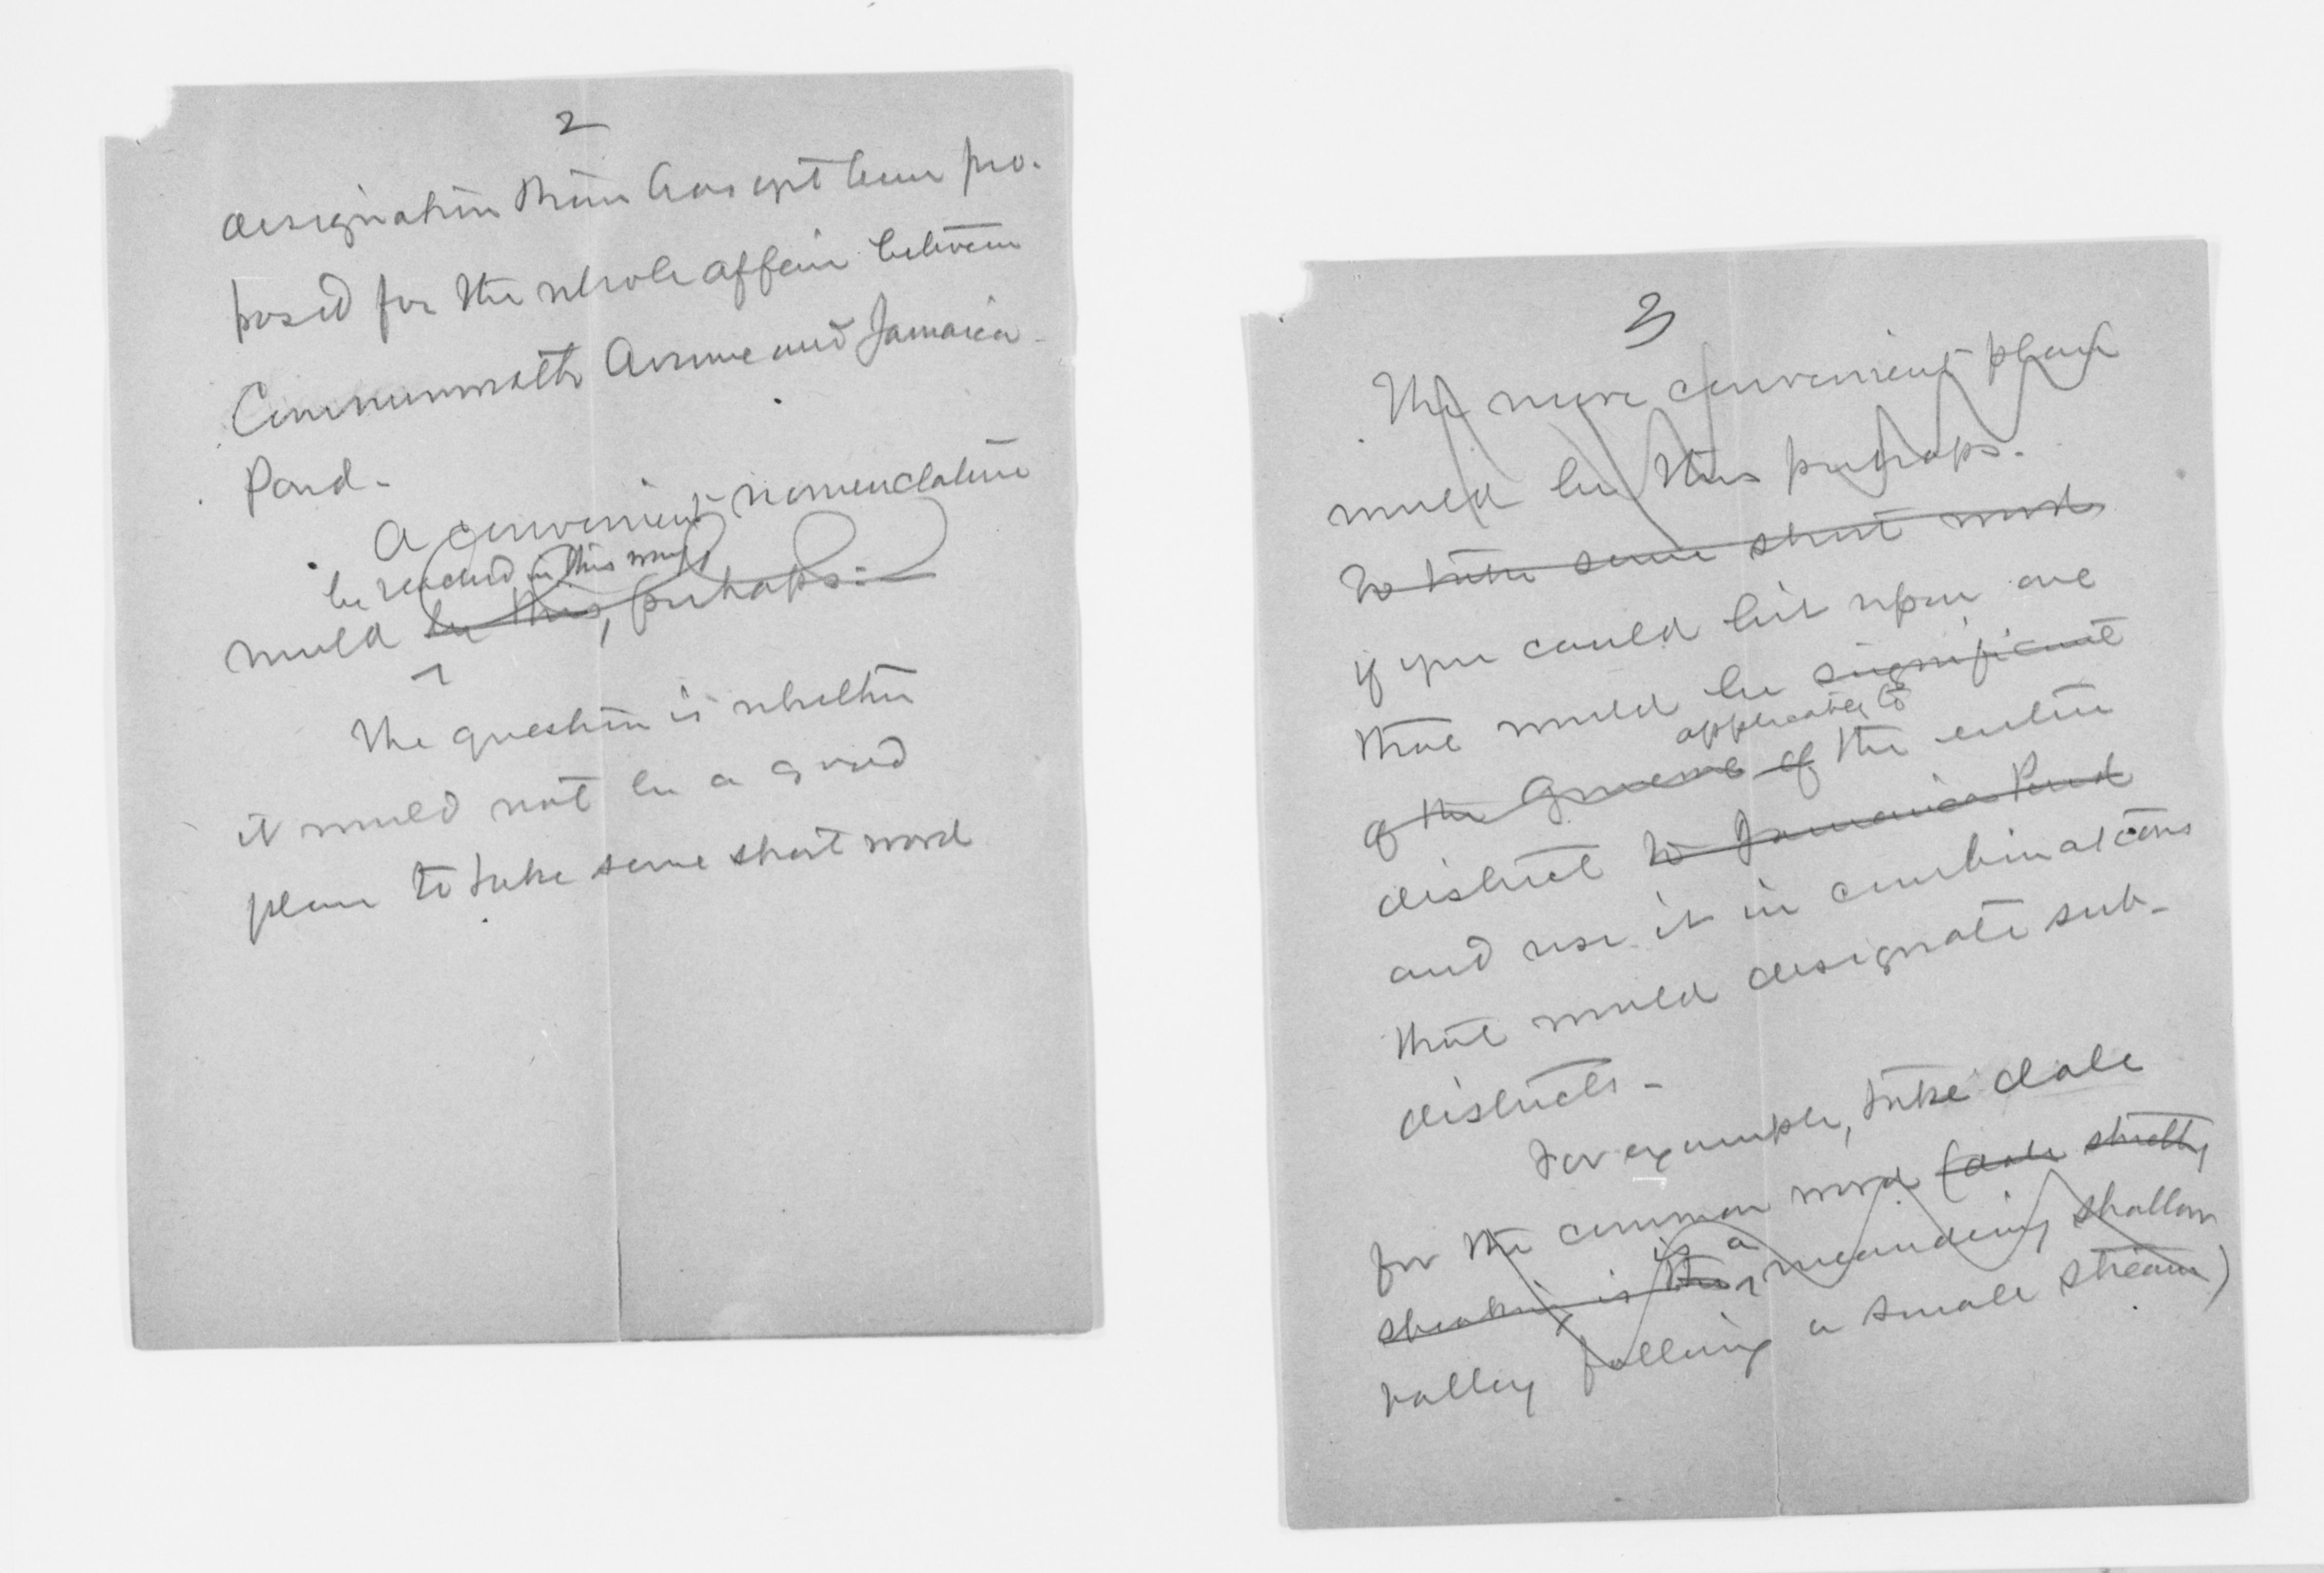 2
designation than has yet been pro-
posed for the whole affair between
Commonwealth Avenue and Jamaica
Pond.
A convenient nomenclature
be reached in this way
would be this, perhaps:—
The question is whether
it would not be a good
plan to take some short word
3
The more convenient plan
would be this perhaps.
To take some short word
if you could hit upon one
that would be significant
applicable to
of the General of the entire
district to Jamaica Pond
and use it in combinations
that would designate sub-
districts.
For example, take dale
for the common word (dale strictly
is a
speaking is the meandering shallow
valley following a small stream)